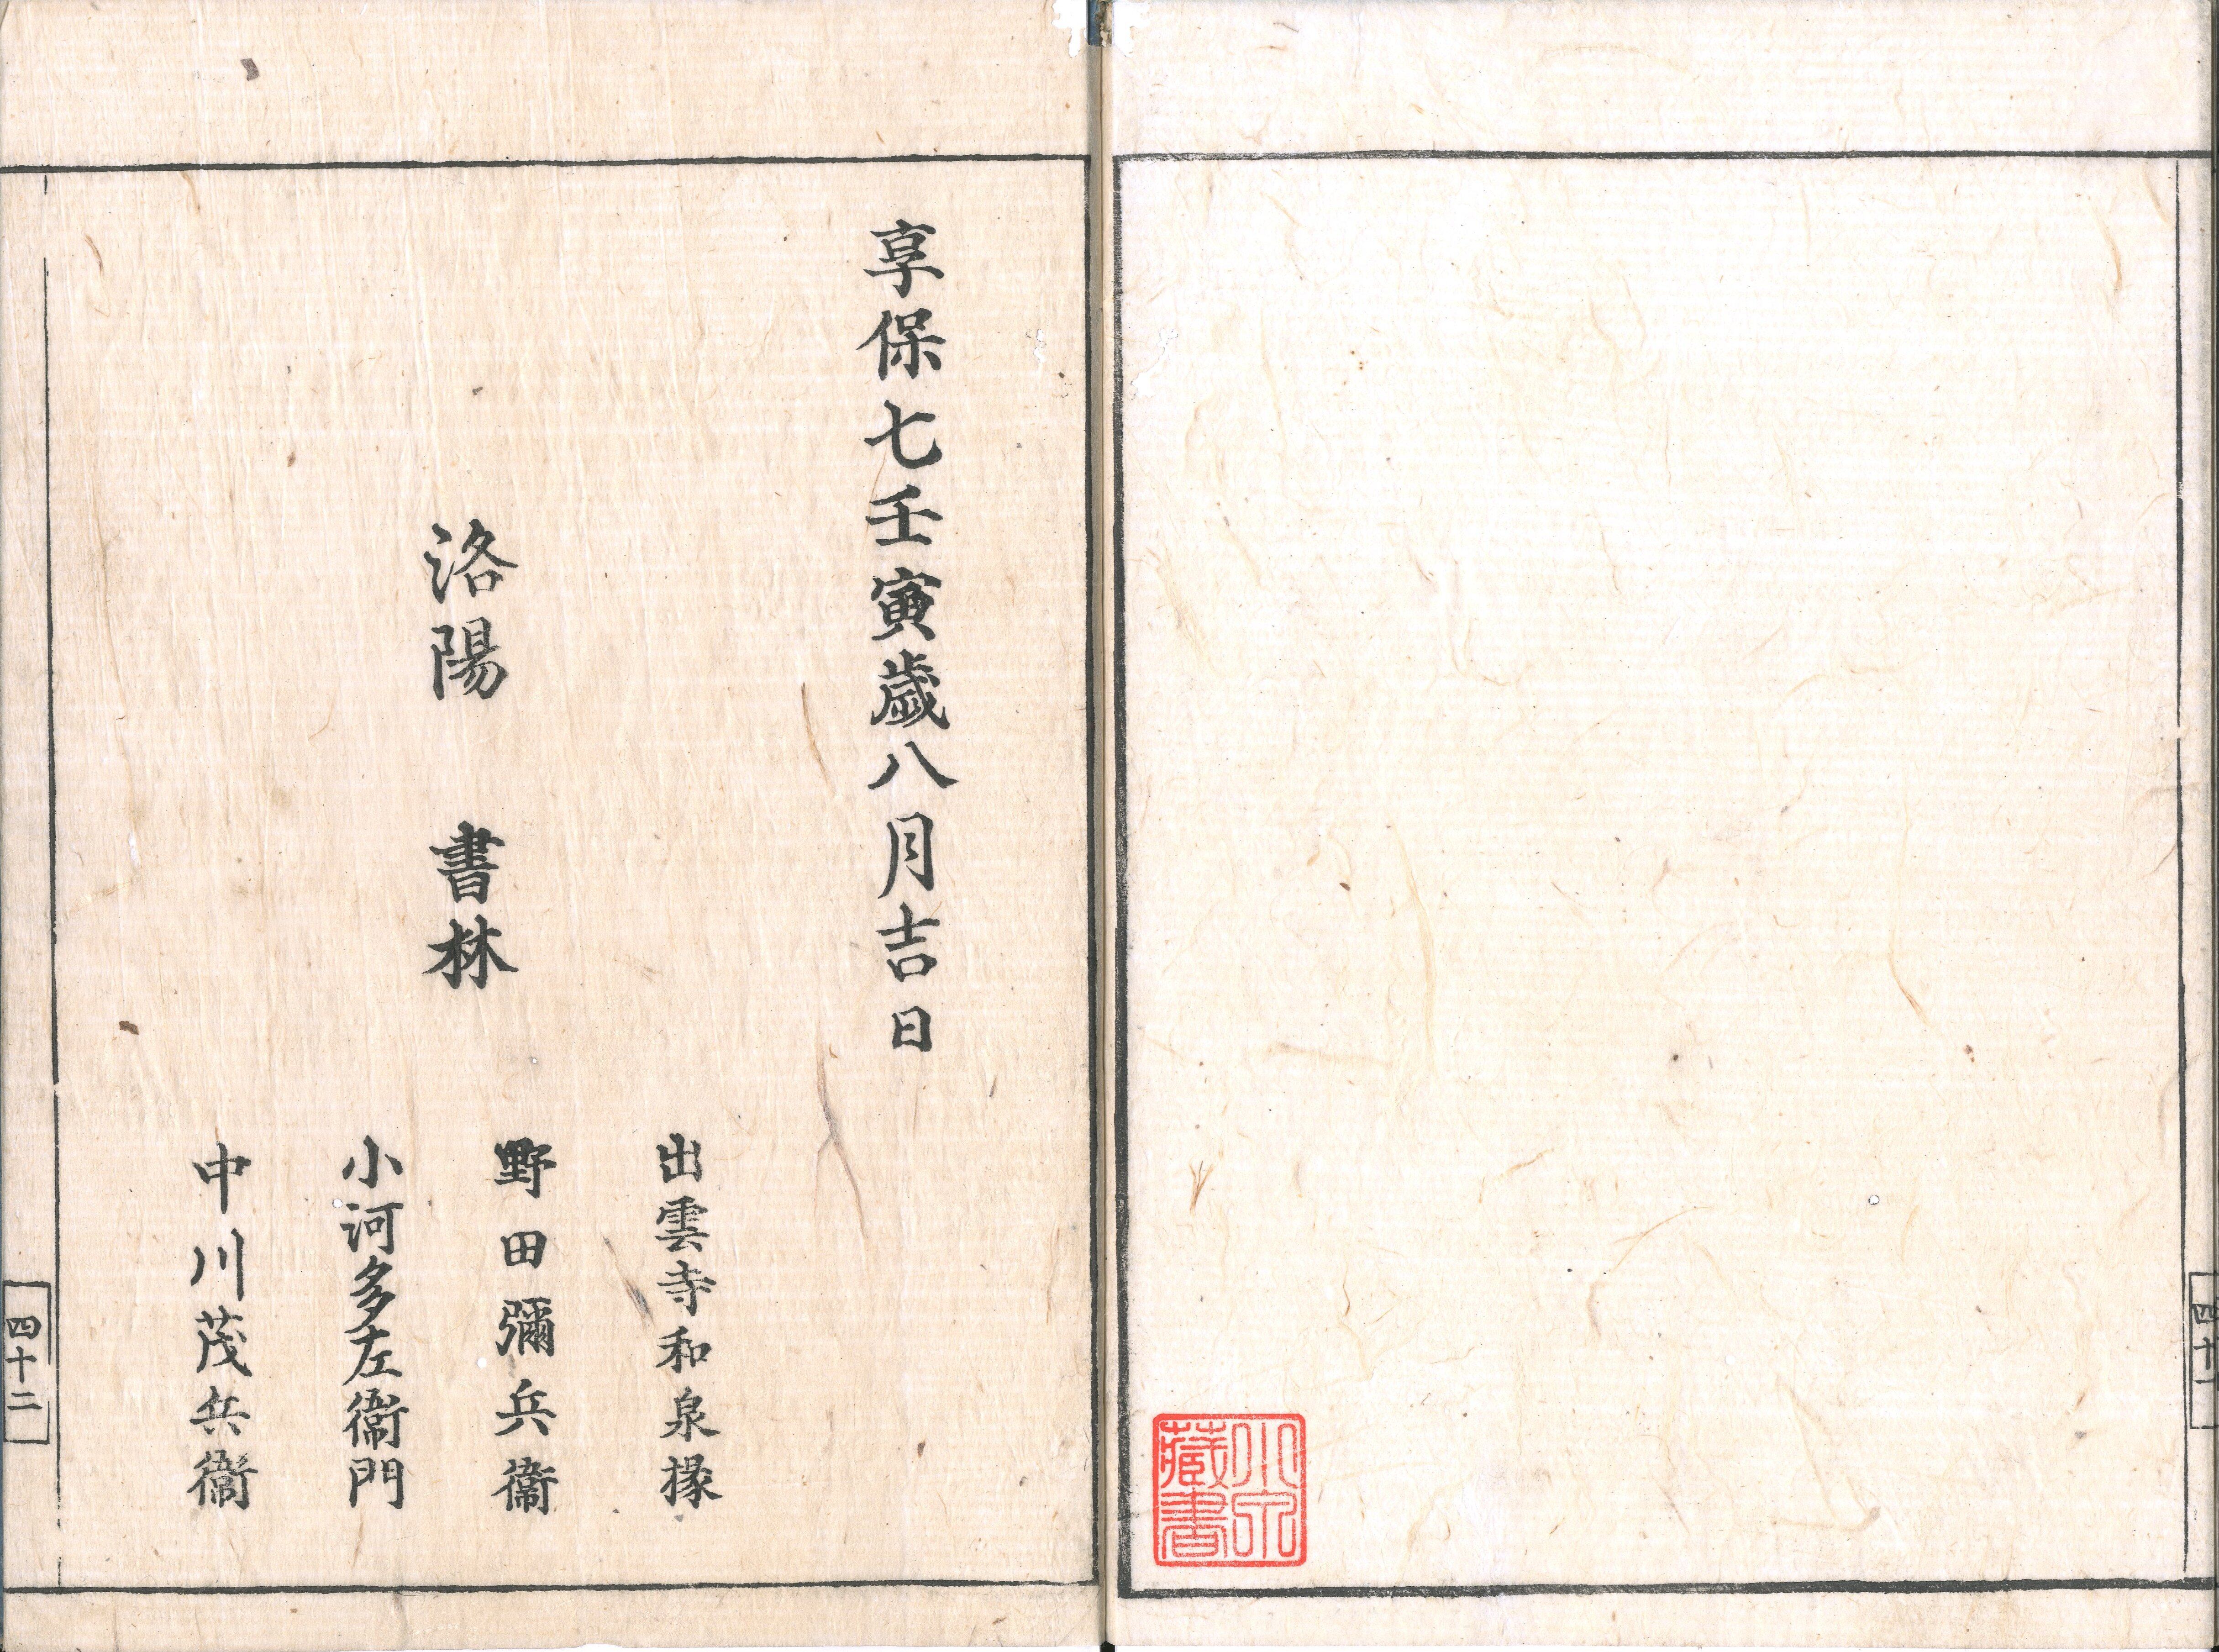 四十一
享保七壬寅歳八月吉日
出雲寺和泉掾
野田彌兵衞
洛陽 書林
小河多左衞門
中川茂兵衞
四十二
藏書